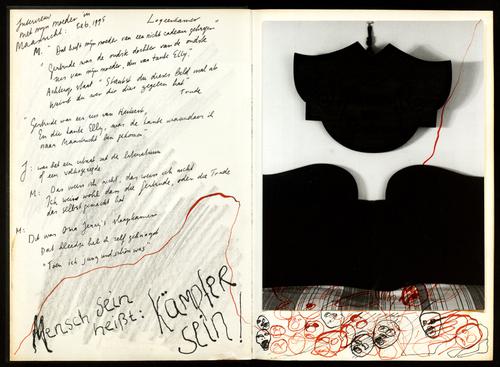 Interview
met mijn moeder in
Maastricht: Feb. 1995
Logeerkamer
M: "Dat heeft mijn moeder van een nicht cadeau gekregen"
"Gertrude was de oudste dochter van de oudste
zus van mijn moeder, dus van tante Elly."
Achterop staat "Staubst du dieses Bild mal ab
Weisst du wer dir dies gegeben hat"
Trude
"Gertrude was een nis van Heinerï,
En die tante Elly, was de tante waardoor ik
naar Maastricht ben gekomen."
J: was het een
of een
M: Das weiss ich nicht, das weiss ich nicht
Ich weiss wohl dass die Gertrude, oder die Trude
das selbst gemacht hat
M: Dit was Oma Jenni's slaapkamer
Dat kleedje heb ik zelf gehaagd
"Toen ich jung und schön was"
Mensch sein
heißt: Kämpfer
sein!